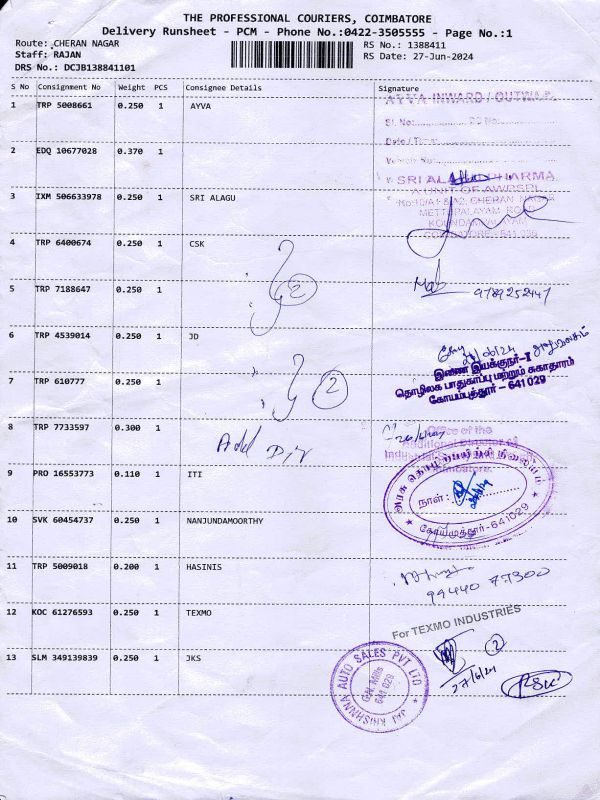 THE PROFESSIONAL COURIERS, COIMBATORE
Delivery Runsheet - PCM - Phone No.:0422-3505555 - Page No.:1
Route: CHERAN NAGAR
RS No.: 1388411
Staff: RAJAN
RS Date: 27-Jun-2024
DRS No.: DCJB138841101
S No Consignment No Weight PCS Consignee Details Signature
1 TRP 5008661 0.250 1 AYVA
AYVA INWARD / OUTWARD
Sl. No:
Date / Time
2 EDQ 10677028 0.370 1
3 IXM 506633978 0.250 1 SRI ALAGU
A UNIT OF AWPSPL
CHERAN NAGAR
METTUPALAYAM ROAD
COIMBATORE - 641 029
4 TRP 6400674 0.250 1 CSK
2
5 TRP 7188647 0.250 1
9789252447
6 TRP 4539014 0.250 1 JD
இணை இயக்குநர்-I
தொழிலக பாதுகாப்பு மற்றும் சுகாதாரம்
கோயம்புத்தூர் - 641 029
7 TRP 610777 0.250 1
2
8 TRP 7733597 0.300 1
Add Dir
Office of the
Additional Director of
Coimbatore
9 PRO 16553773 0.110 1 ITI
அரசு தொழிற்பயிற்சி நிலையம்
நாள்:
கோயமுத்தூர்-641029
10 SVK 60454737 0.250 1 NANJUNDAMOORTHY
11 TRP 5009018 0.200 1 HASINIS
94440 77300
12 KOC 61276593 0.250 1 TEXMO
For TEXMO INDUSTRIES
2
27/6/24
13 SLM 349139839 0.250 1 JKS
JAI KRISHNAA AUTO SALES PVT LTD
G.N. Mills
641 029